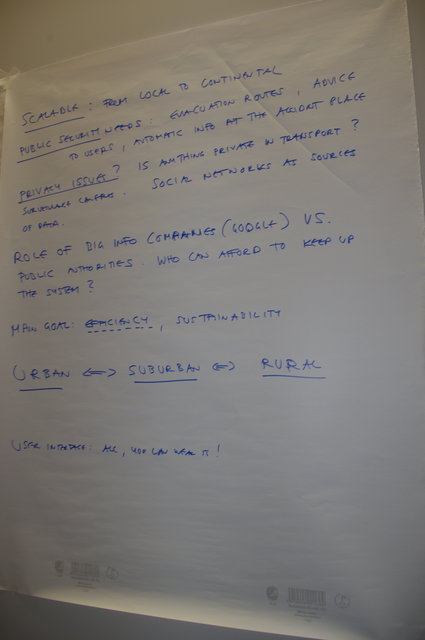 SCALABLE : FROM LOCAL TO CONTINENTAL
PUBLIC SECURITY NEEDS : EVACUATION ROUTES , ADVICE
TO USERS , AUTOMATIC INFO AT THE ACCIDNT PLACE
PRIVACY ISSUES ? IS ANYTHING PRIVATE IN TRANSPORT ?
SURVEILLANCE CAMERAS . SOCIAL NETWORKS AS SOURCES
OF DATA.
ROLE OF BIG INFO COMPANIES (GOOGLE) VS.
PUBLIC AUTHORITIES . WHO CAN AFFORD TO KEEP UP
THE SYSTEM ?
MAIN GOAL : EFFICIENCY , SUSTAINABILITY
URBAN <=> SUBURBAN <=> RURAL
USER INTERFACE : ALL , YOU CAN WEAR IT !